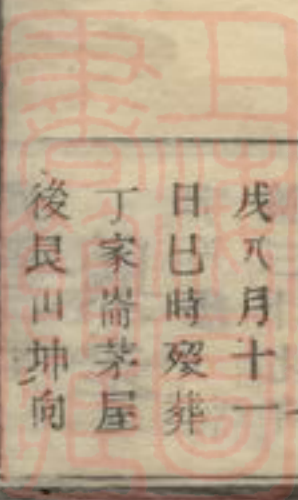 戌八月十一
日巳時歿葬
丁家崙茅屋
後艮山坤向